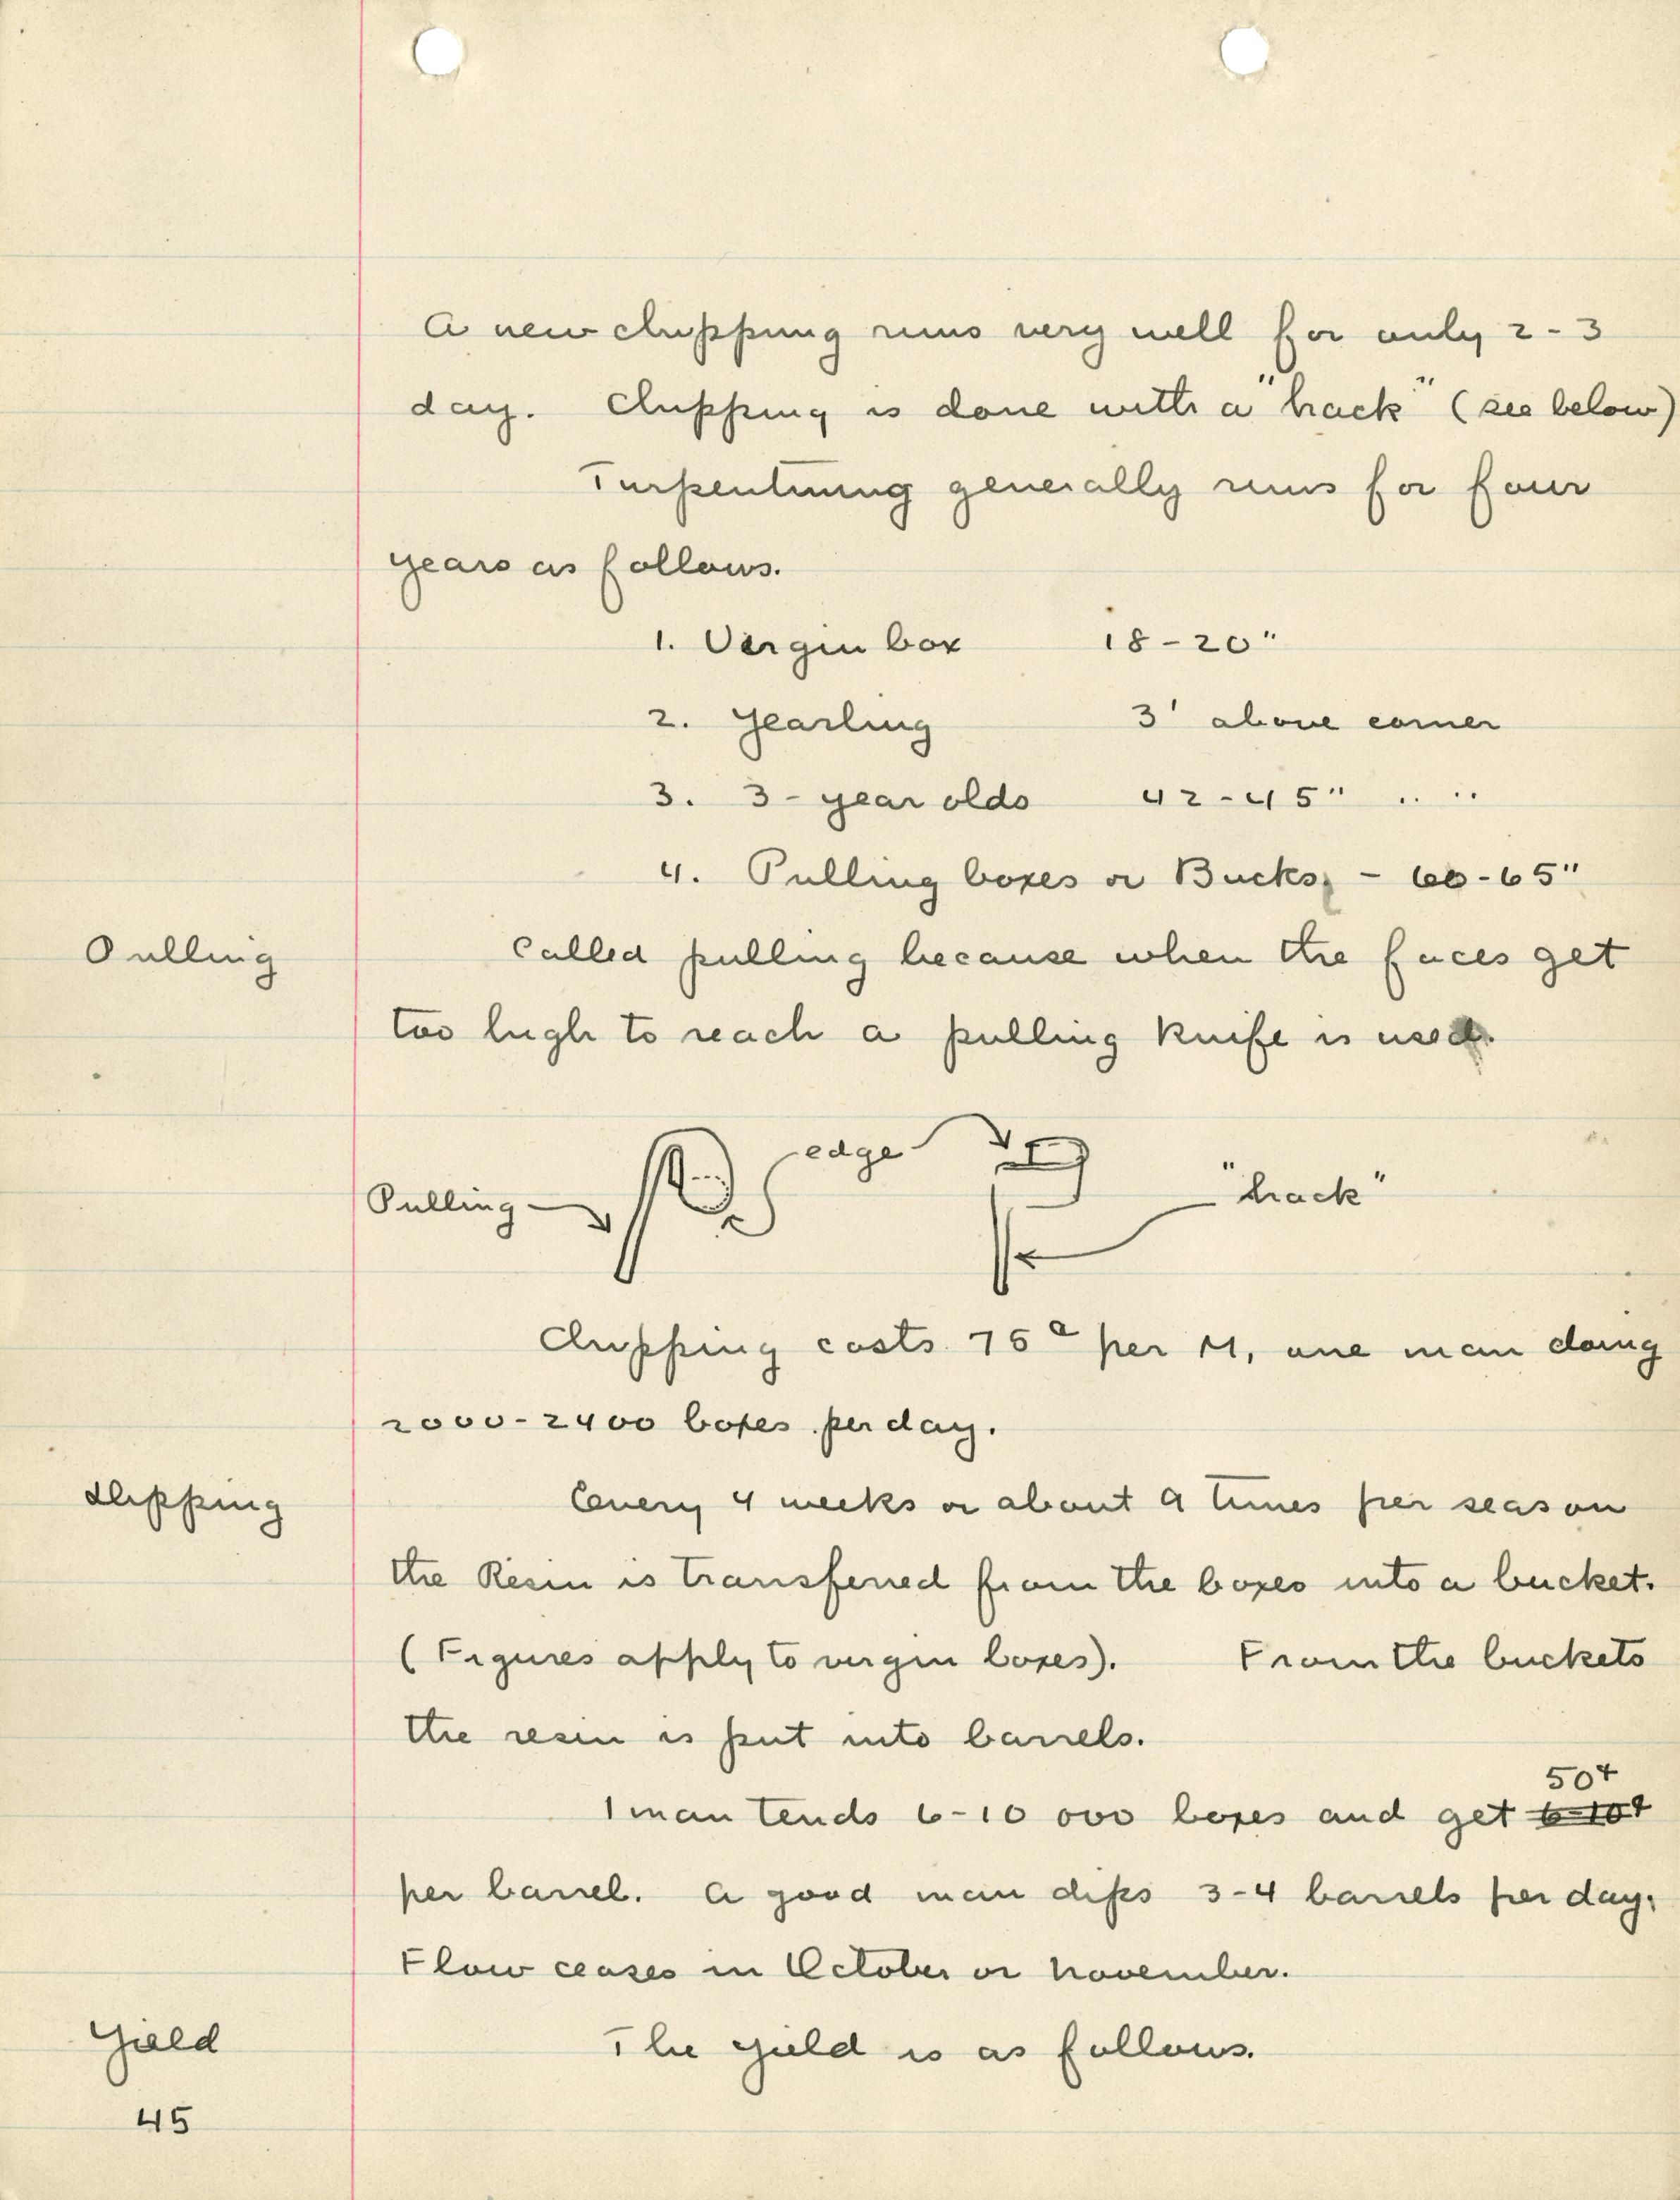 A new chipping runs very well for only 2-3
day. Chipping is done with a "hack" (see below)
Turpentining generally runs for four
years as follows.
1. Virgin box 18-20"
2. Yearling 3' above corner
3. 3-year olds 42-45" " "
4. Pulling boxes or Bucks, - 60-65"
Pulling
Called pulling because when the faces get
too high to reach a pulling knife is used.
edge
Pulling
"hack"
Chipping costs 75¢ per M, one man doing
2000-2400 boxes per day.
Dipping
Every 4 weeks or about 9 times per season
the Resin is transferred from the boxes into a bucket.
(Figures apply to virgin boxes). From the buckets
the resin is put into barrels.
50¢
1 man tends 6-10 000 boxes and get 6-10¢
per barrel. A good man dips 3-4 barrels per day.
Flow ceases in October or November.
Yield
The yield is as follows.
45